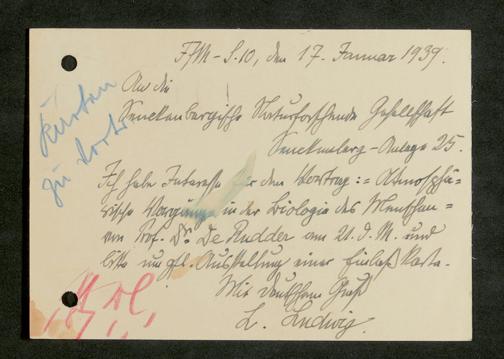 FfM - S. 10, den 17. Januar 1939.
An die
Senckenbergische Naturforschende Gesellschaft
Senckenberg-Anlage 25.
Ich habe Interesse für den Vortrag: = Atmosphä=
rische Vorgänge in der Biologie des Menschen =
von Prof. Dr. De Rudder am 21. d. M. und
bitte um gfl. Ausstellung einer Einlaß Karte.
Mit deutschem Gruß
L. Ludwig.
Karten
zu